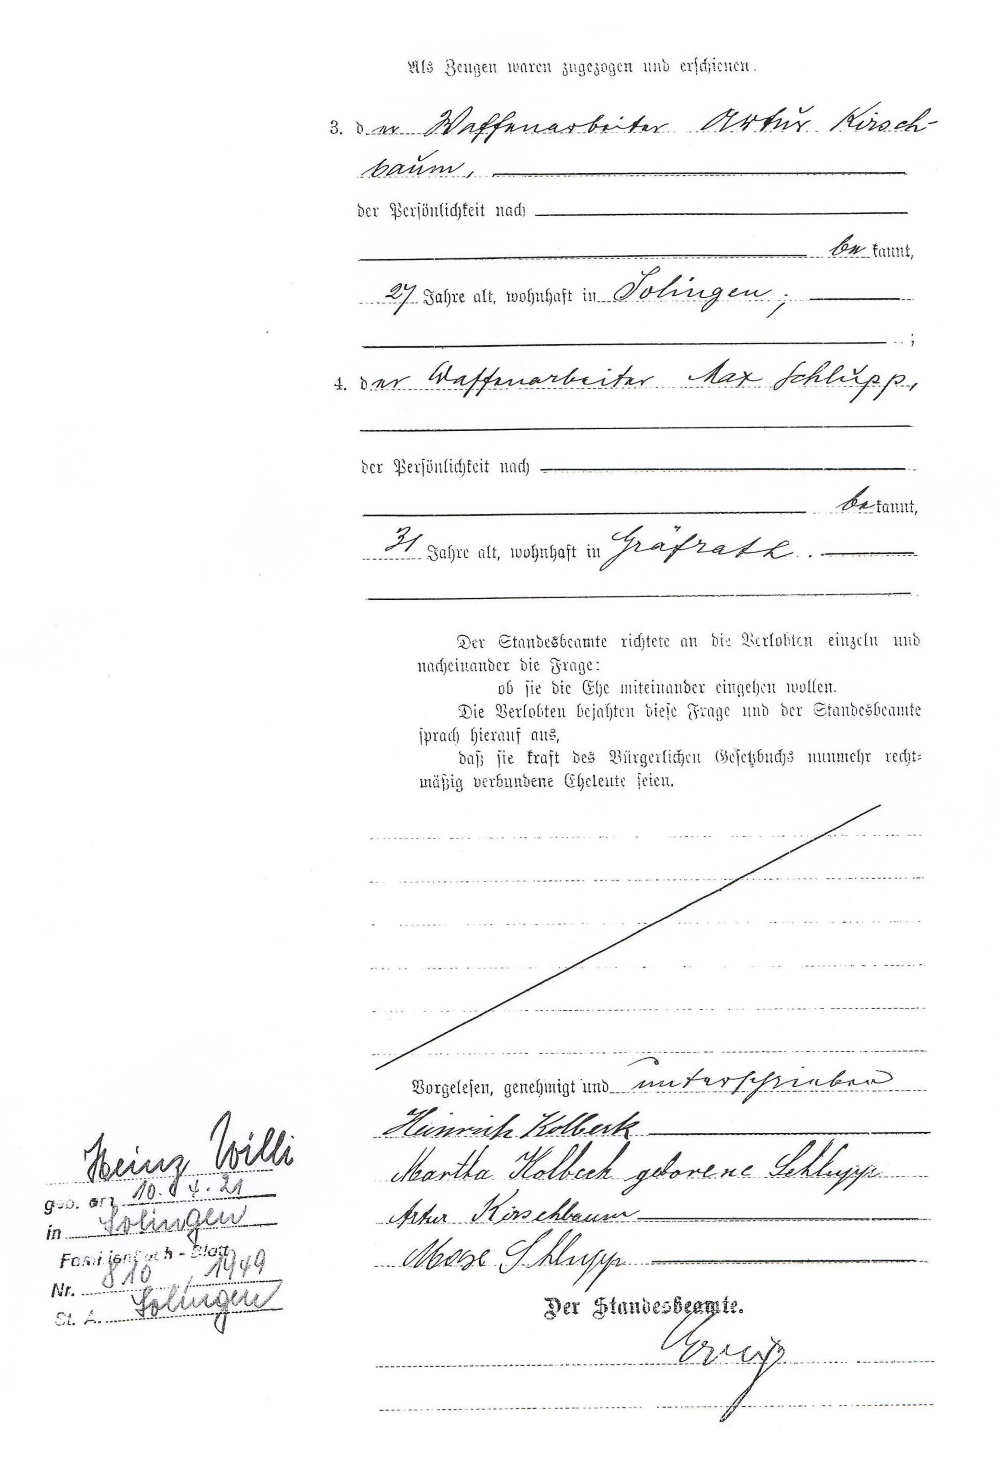 Als Zeugen waren zugezogen und erschienen.
3. der Waffenarbeiter Artur Kirsch-
baum,
der Persönlichkeit nach
bekannt,
27 Jahre alt, wohnhaft in Solingen;
;
4. der Waffenarbeiter Max Schlupp,
der Persönlichkeit nach
bekannt,
31 Jahre alt, wohnhaft in Gräfrath.
Der Standesbeamte richtete an die Verlobten einzeln und
nacheinander die Frage:
ob sie die Ehe miteinander eingehen wollen.
Die Verlobten bejahten diese Frage und der Standesbeamte
sprach hierauf aus,
daß sie kraft des Bürgerlichen Gesetzbuchs nunmehr recht-
mäßig verbundene Eheleute seien.
Vorgelesen, genehmigt und unterschrieben
Heinrich Kolbeck
Martha Kolbeck geborene Schlupp
Artur Kirschbaum
Max Schlupp
Der Standesbeamte.
Heinz Willi
geb. am 10. 4. 21
in Solingen
Familienbuch-Blatt
Nr. 810, 1949
St. A. Solingen